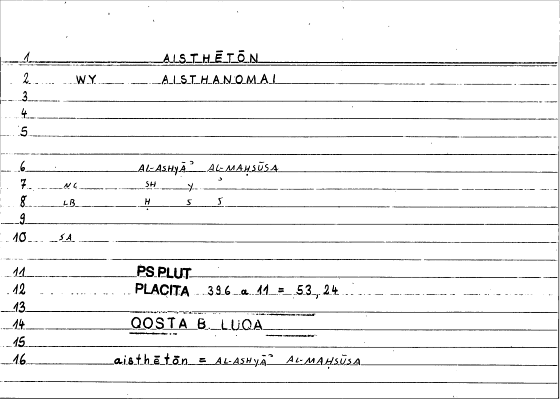 1 AISTHĒTŌN
2 WY AISTHANOMAI
3
4
5
6 AL-ASHYĀʾ AL-MAḤSŪSA
7 NC SH Y ʾ
8 LB Ḥ S S
9
10 SA
11 PS PLUT
12 PLACITA 396 a 11 = 53,24
13
14 QOSTA B. LUQA
15
16 aisthētōn = AL-ASHYĀʾ AL-MAḤSŪSA